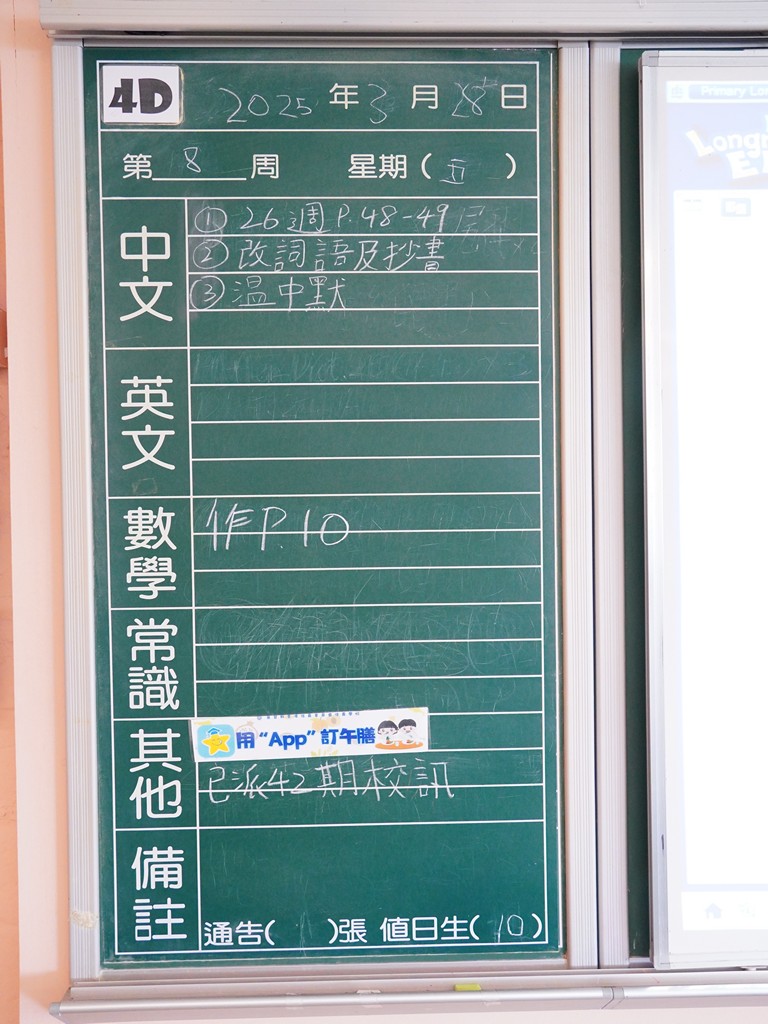 4D
2025年3月28日
第8周 星期(五)
中文
① 26週P.48-49
② 改詞語及抄書
③ 温中默
英文
數學
作P.10
常識
其他
用“App”訂午膳
已派42期校訊
備註
通告( )張 值日生(10)
Primary Lon
Long
E